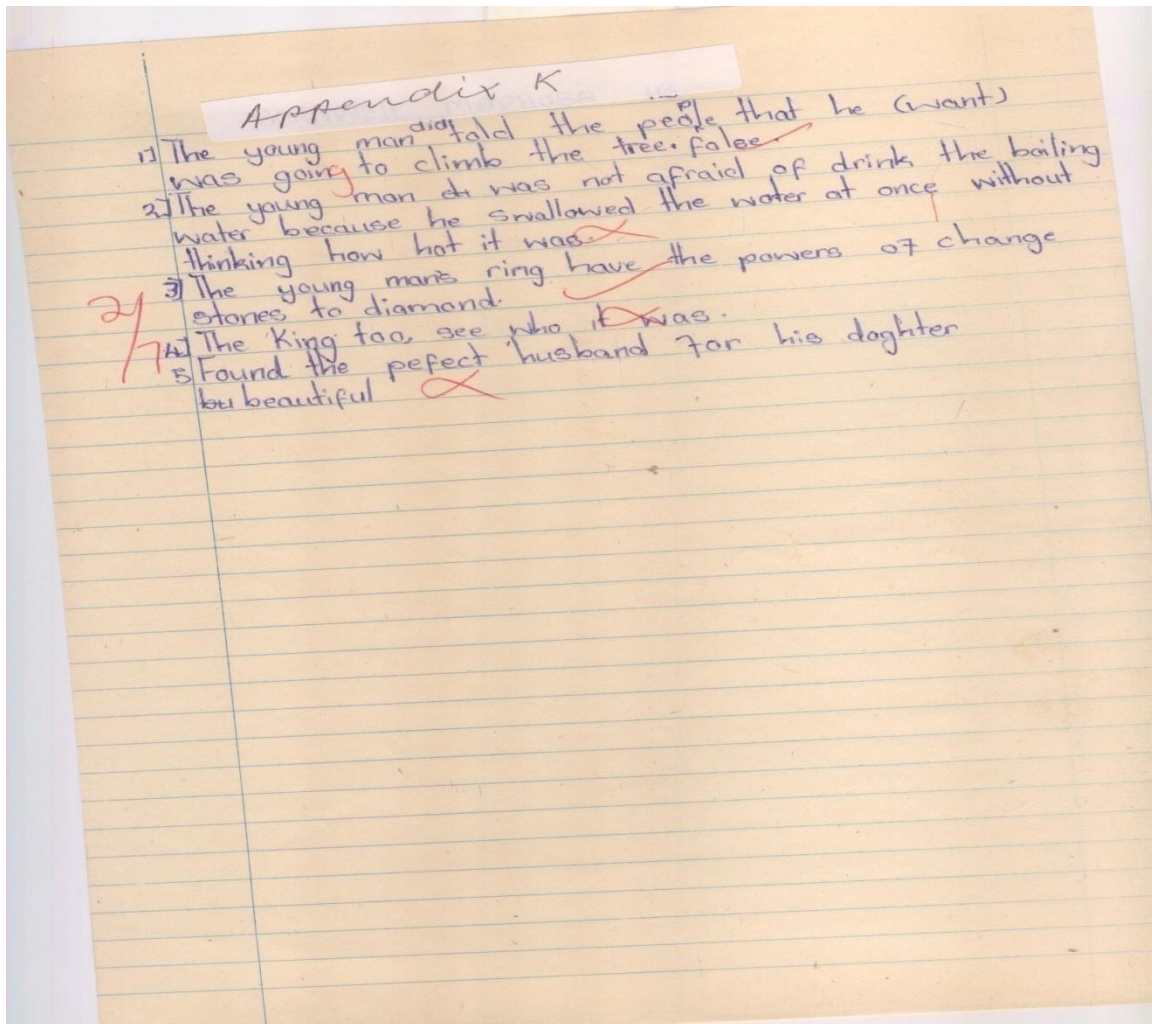 Appendix K
1] The young man did told the peole that he (want)
was going to climb the tree. false.
2] The young man was not afraid of drink the boiling
water because he swallowed the water at once without
thinking how hot it was.
3] The young man's ring have the powers of change
stones to diamond.
4] The King too, see who it was.
5 Found the pefect husband for his doghter
beautiful
2/7